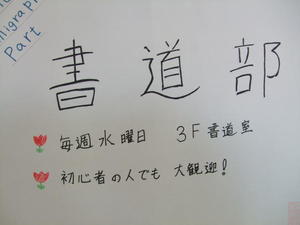 alligraphy
Part
書道部
毎週水曜日 3F書道室
初心者の人でも 大観迎!